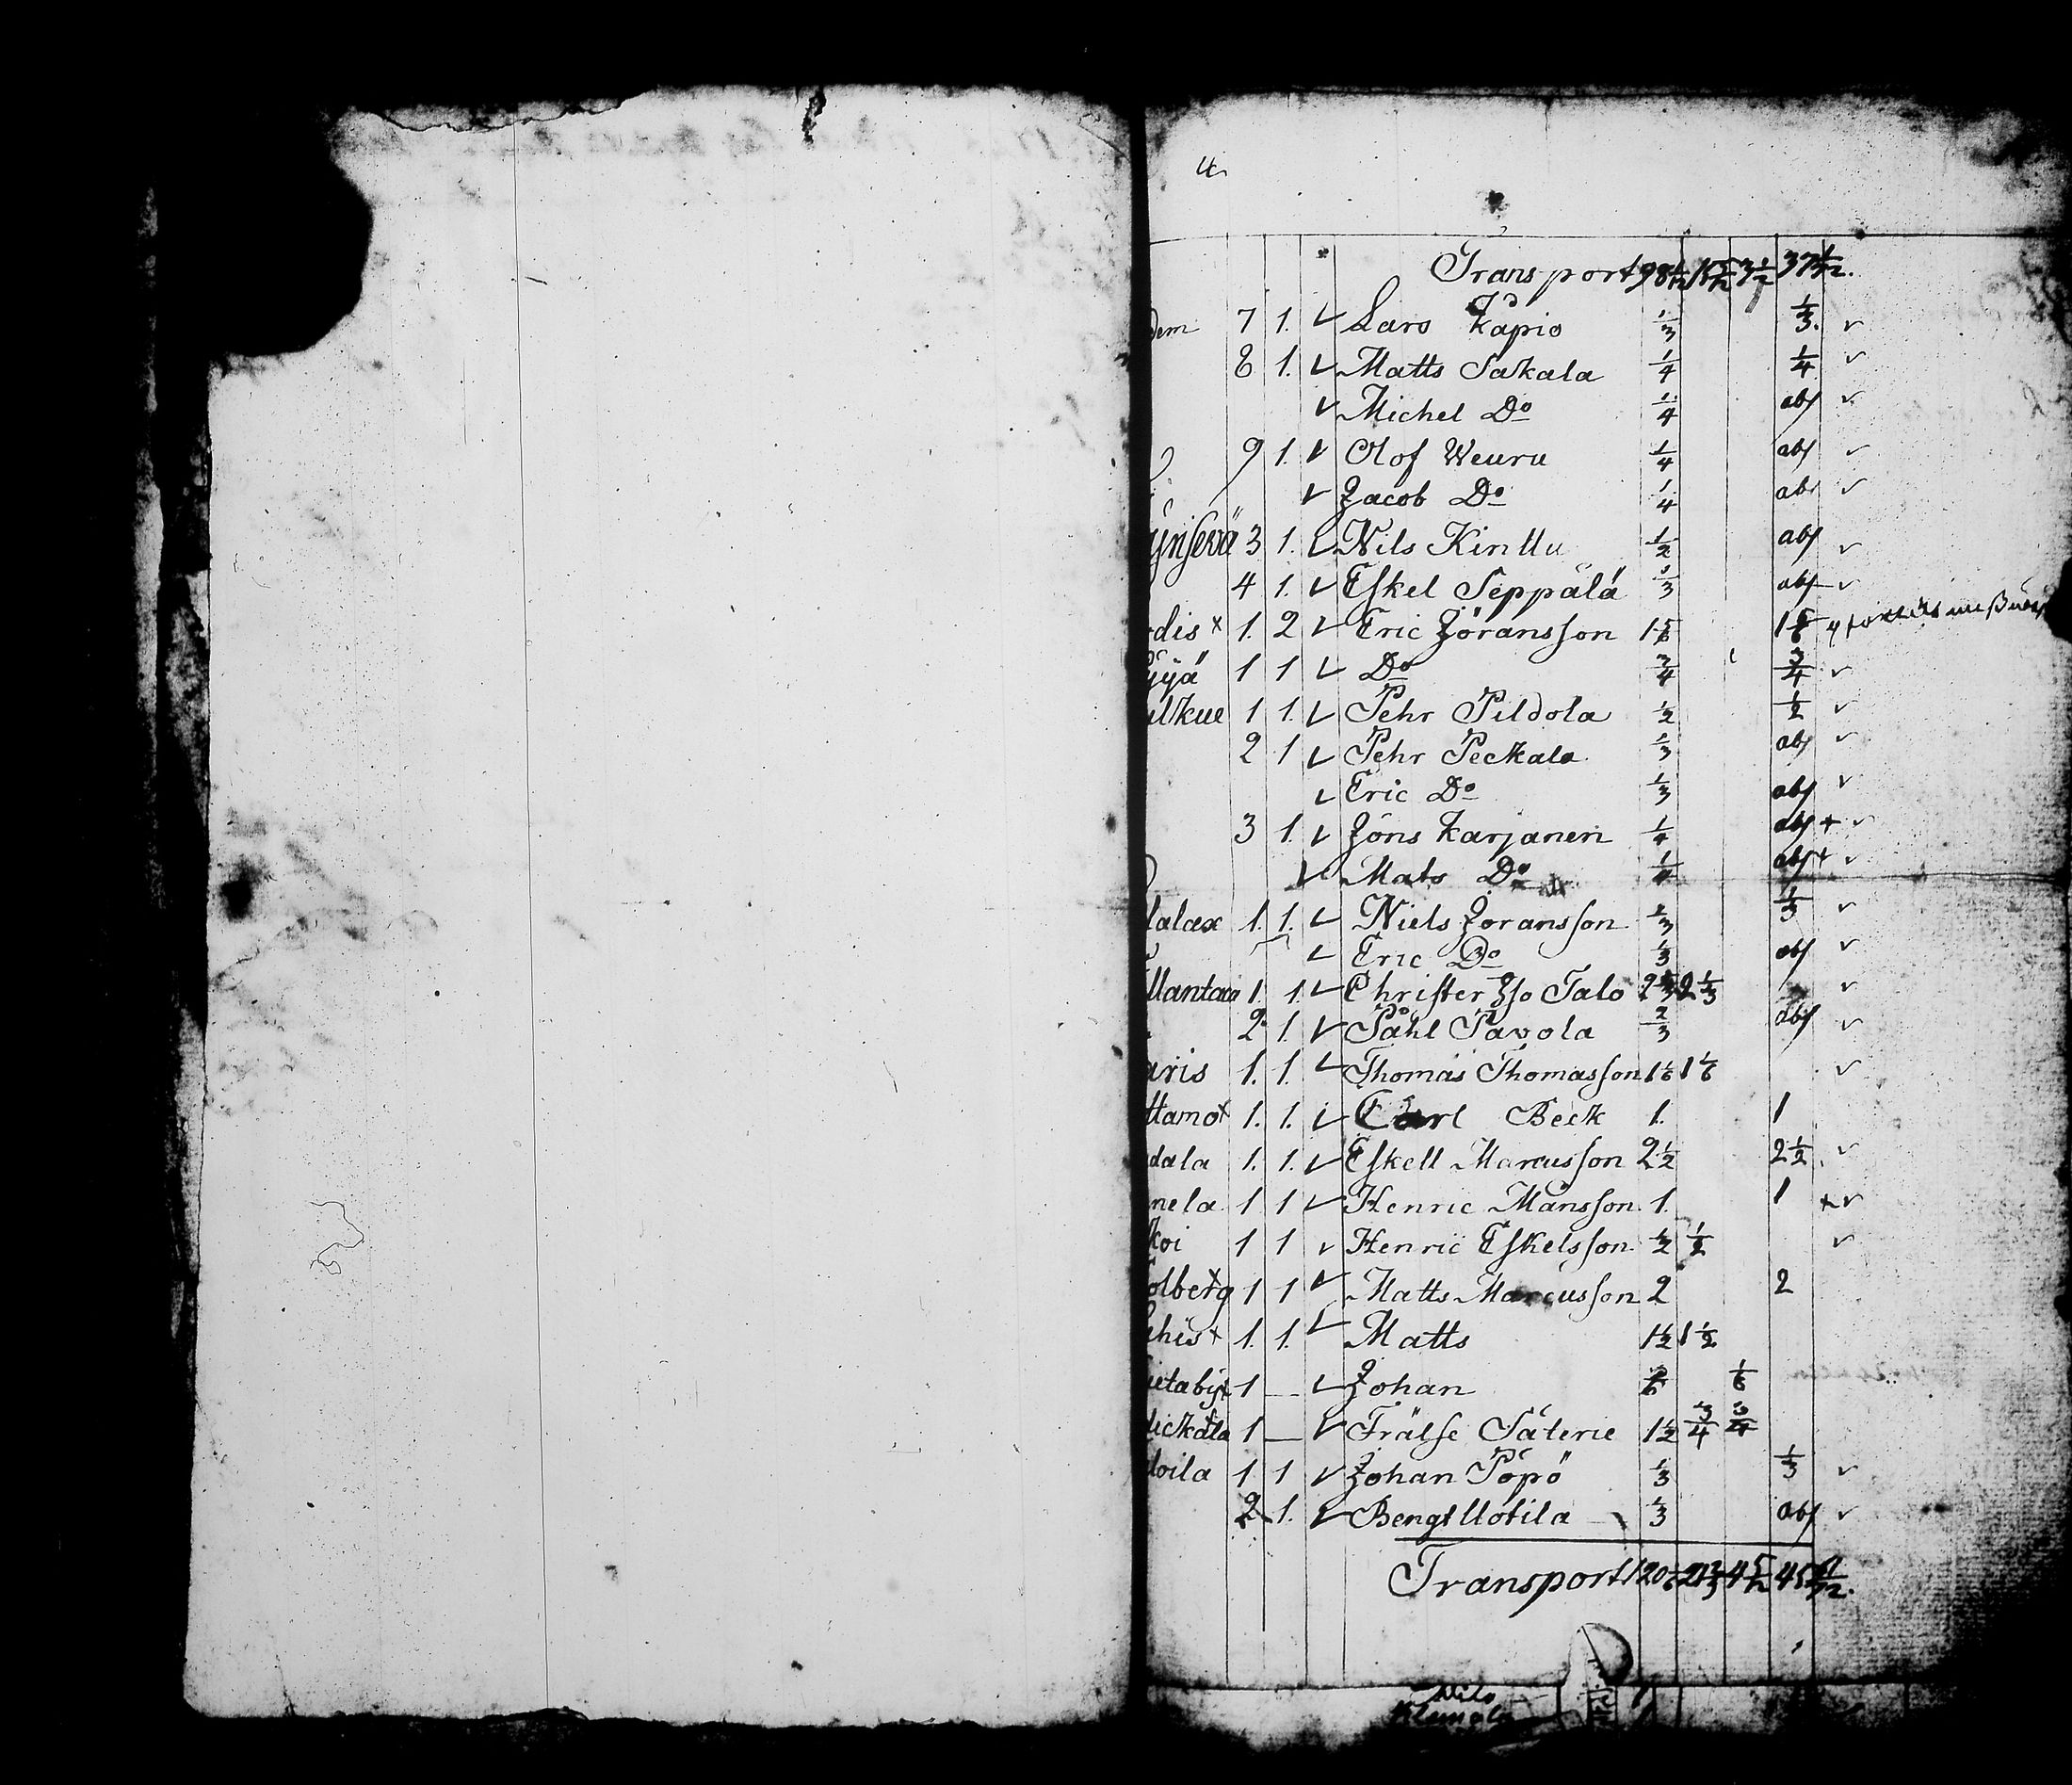 Transport 98 1/2 3 1/2
dem 7 1. Lars Käpiö 1/3 1/3.
8 1. Matts Sakala 1/4 1/4
Michel Do 1/4 abs
9 1. Olof Weuru 1/4 abs
Jacob Do 1/4 abs
3 1. Nils Kinttu 1/2 abs
4 1. Eskel Seppälä 1/3 abs
dis x 1. 2 Eric Jöransson 1 5/6 1 5/6
1 1 Do 3/4 3/4
ulkue 1 1. Pehr Pildola 1/2 1/2
2 1 Pehr Peckala 1/3 abs
Eric Do 1/3 abs
3 1. Jöns Karjanen 1/4 abs +
Mats Do 1/4 abs +
lalax 1. 1. Niels Joransson 1/3 1/3
Eric Do 1/3 abs
1. 1. Christer Jso Talo 2 1/3 2 1/3
2 1. Påhl Pavola 2/3 abs
aris 1. 1. Thomas Thomasson 1 1/6 1 1/6
ttamo x 1. 1. Carl Beck 1. 1
dala 1. 1. Eskell Marcusson 2 1/2 2 1/2
nela 1 1 Henric Månsson 1. 1 +
koi 1 1 Henric Eskelsson 1/2 1/2
olberg x 1 1 Matts Marcusson 2 2
uhis x 1. 1. Matts 1 1/2 1 1/2
ietaby x 1 — Johan 1/6
ickala 1 — Frälse Säterie 1 1/2 3/4 3/4
loila 1 1 Johan Pöpö 1/3 1/3
2 1. Bengt Uotila 1/3 abs
Transport 120
Nils
Klemola